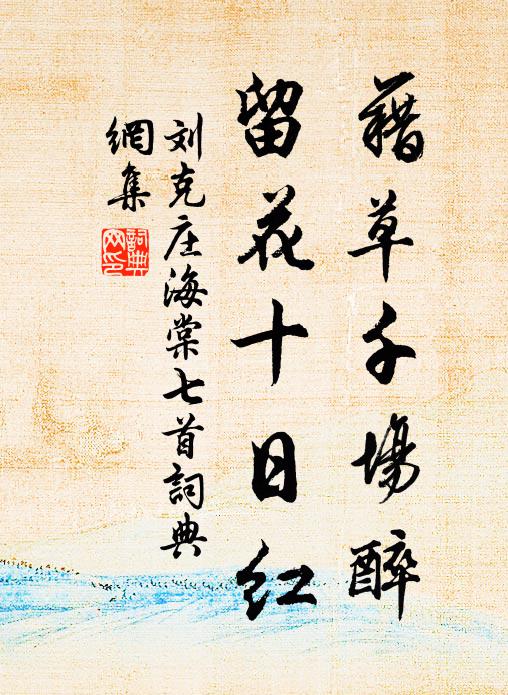 藉草千場醉
留花十日红
刘克庄海棠七首詞典
網集
詞典
网印